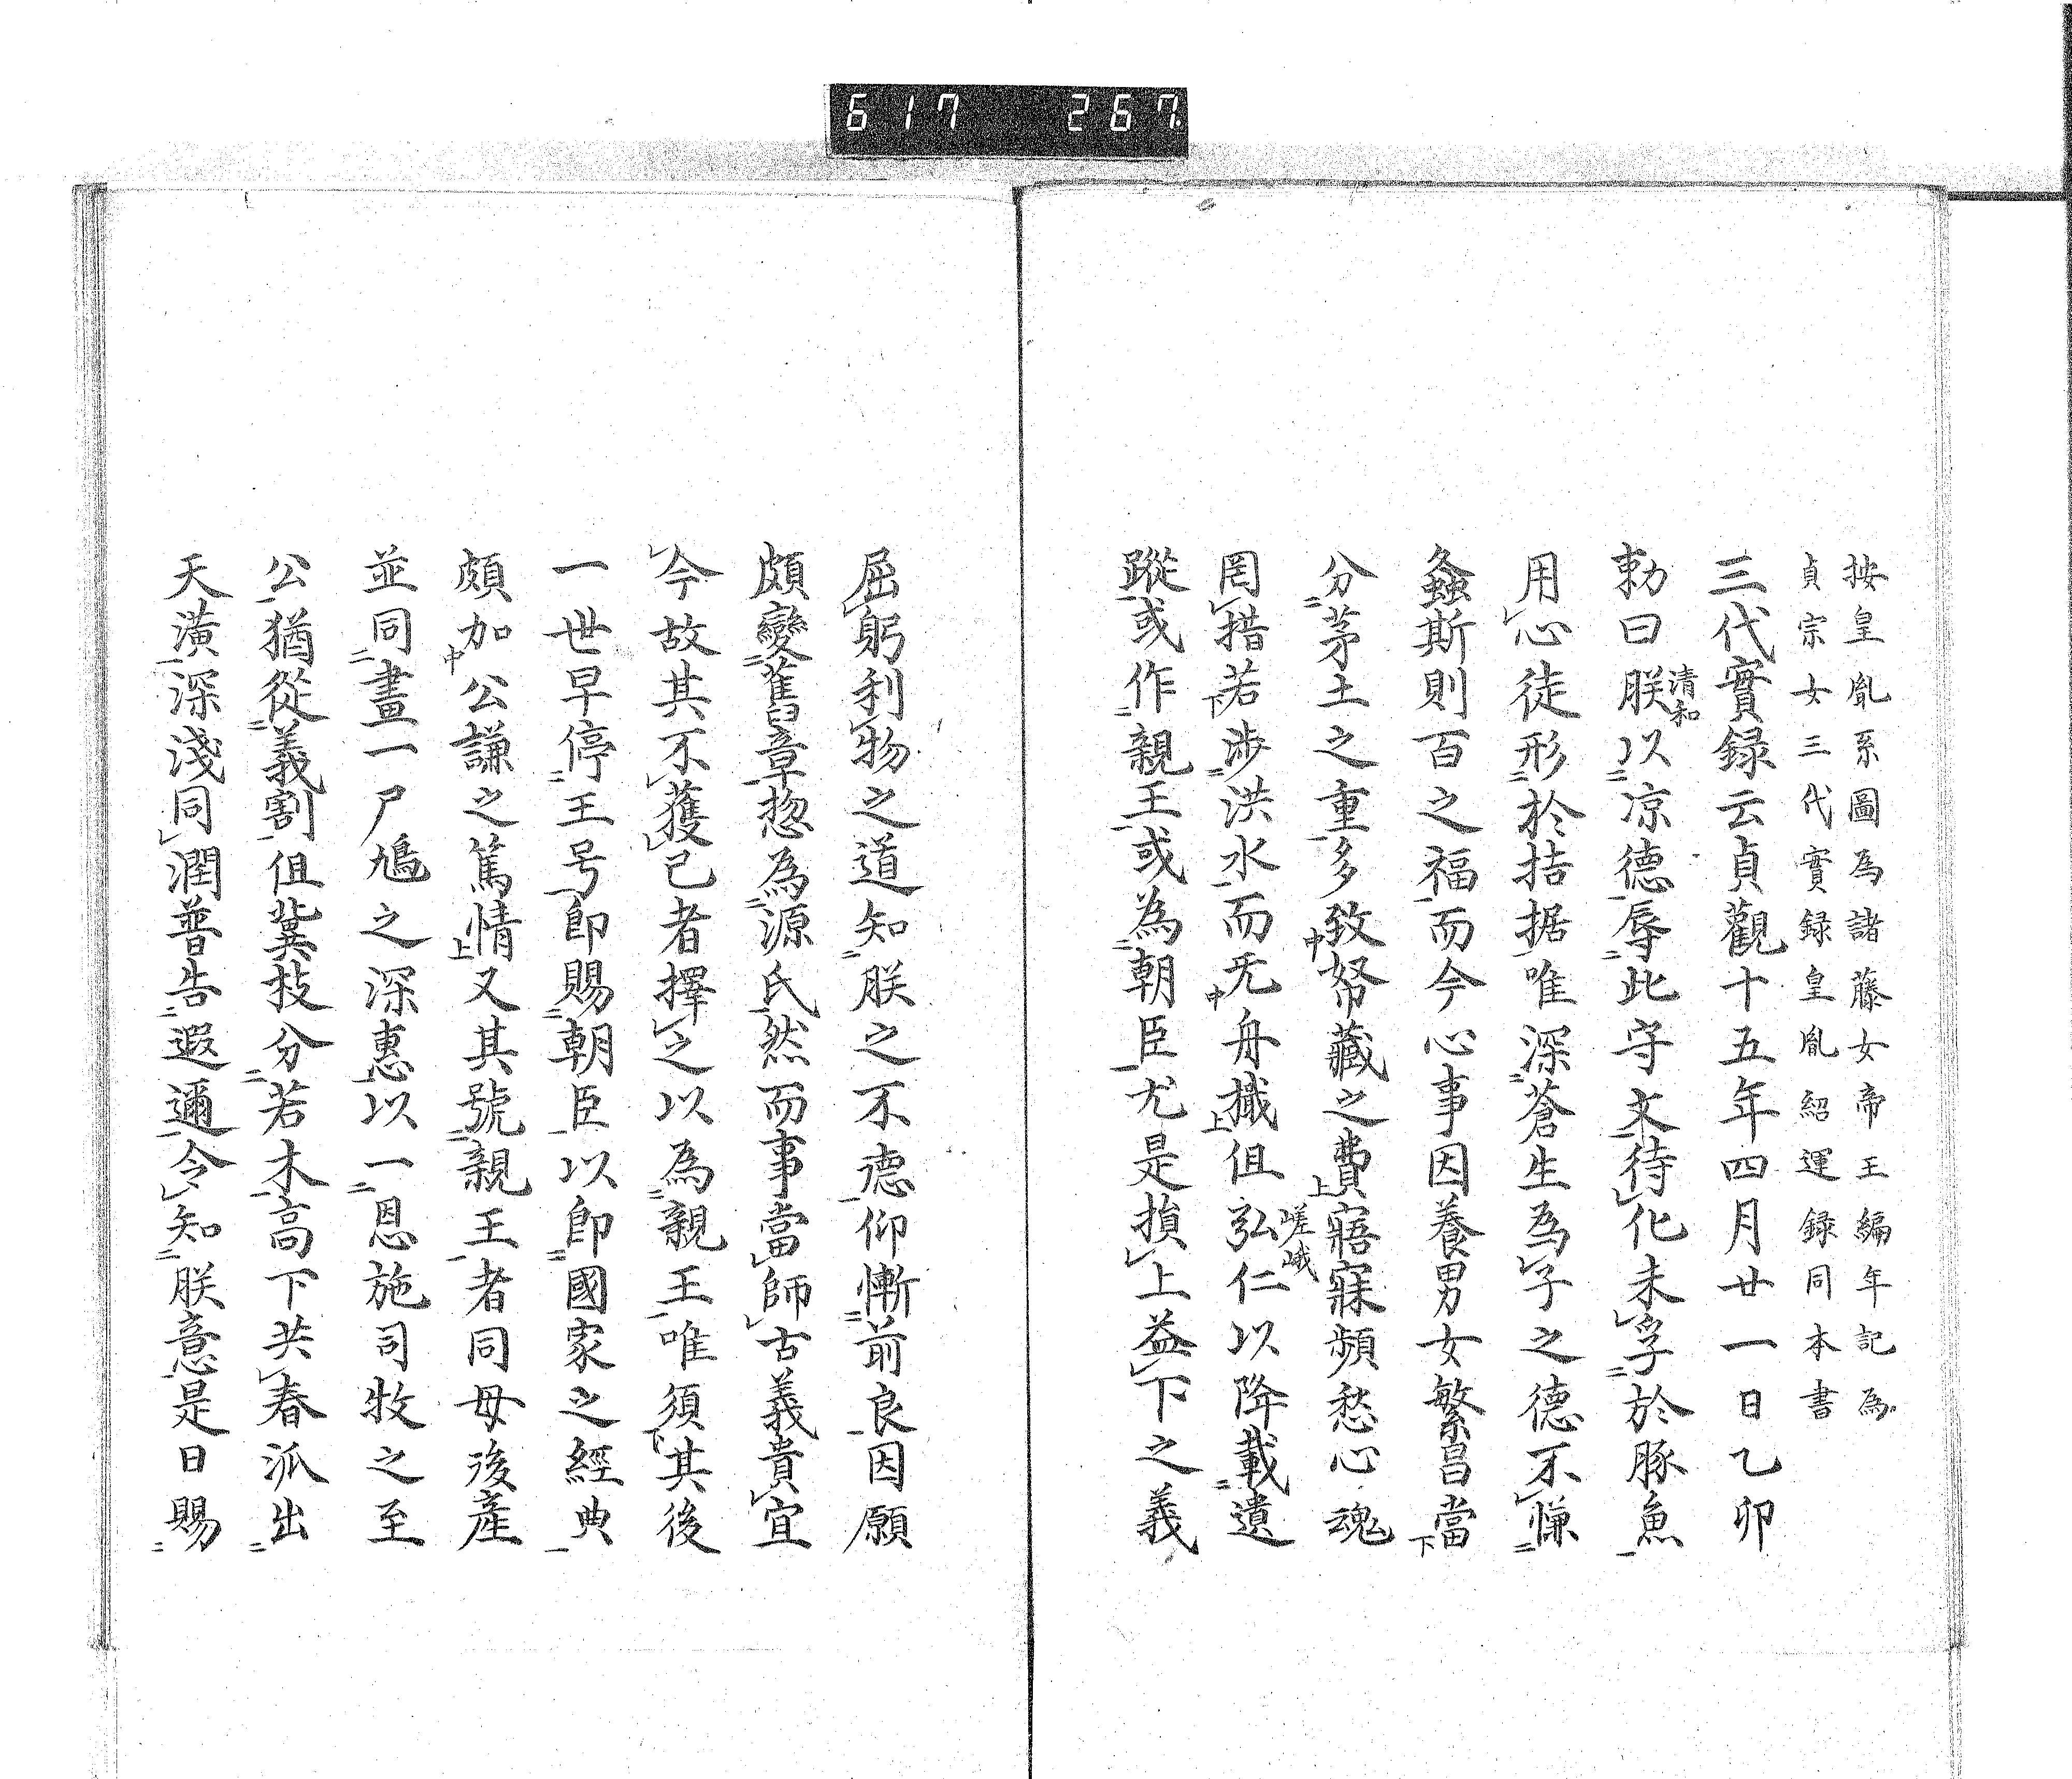 617 267
按皇胤系圖為諸藤女帝王編年記為
貞宗女三代實録皇胤紹運録同本書
三代實録云貞觀十五年四月廿一日乙卯
勅曰朕以凉德辱此守文待化未孚於豚魚
清和
用心徒形於拮据唯深蒼生為子之德不慊
螽斯則百之福而今心事因養男女繁昌當
分茅土之重多致帑藏之費寤寐頻愁心魂
罔措若涉洪水而无舟檝伹弘仁以降載遺
嵯峨
蹤或作親王或為朝臣尤是損上益下之義
屈躬利物之道知朕之不德仰慚前良因願
頗變舊章惣為源氏然而事當師古義貴宜
今故其不獲已者擇之以為親王唯須其後
一世早停王号即賜朝臣以即國家之經典
頗加公謙之篤情又其號親王者同母後產
並同晝一尸鳩之深惠以一恩施司牧之至
公猶從義割伹冀枝分若木高下共春派出
天潢深淺同潤普告遐邇令知朕意是日賜